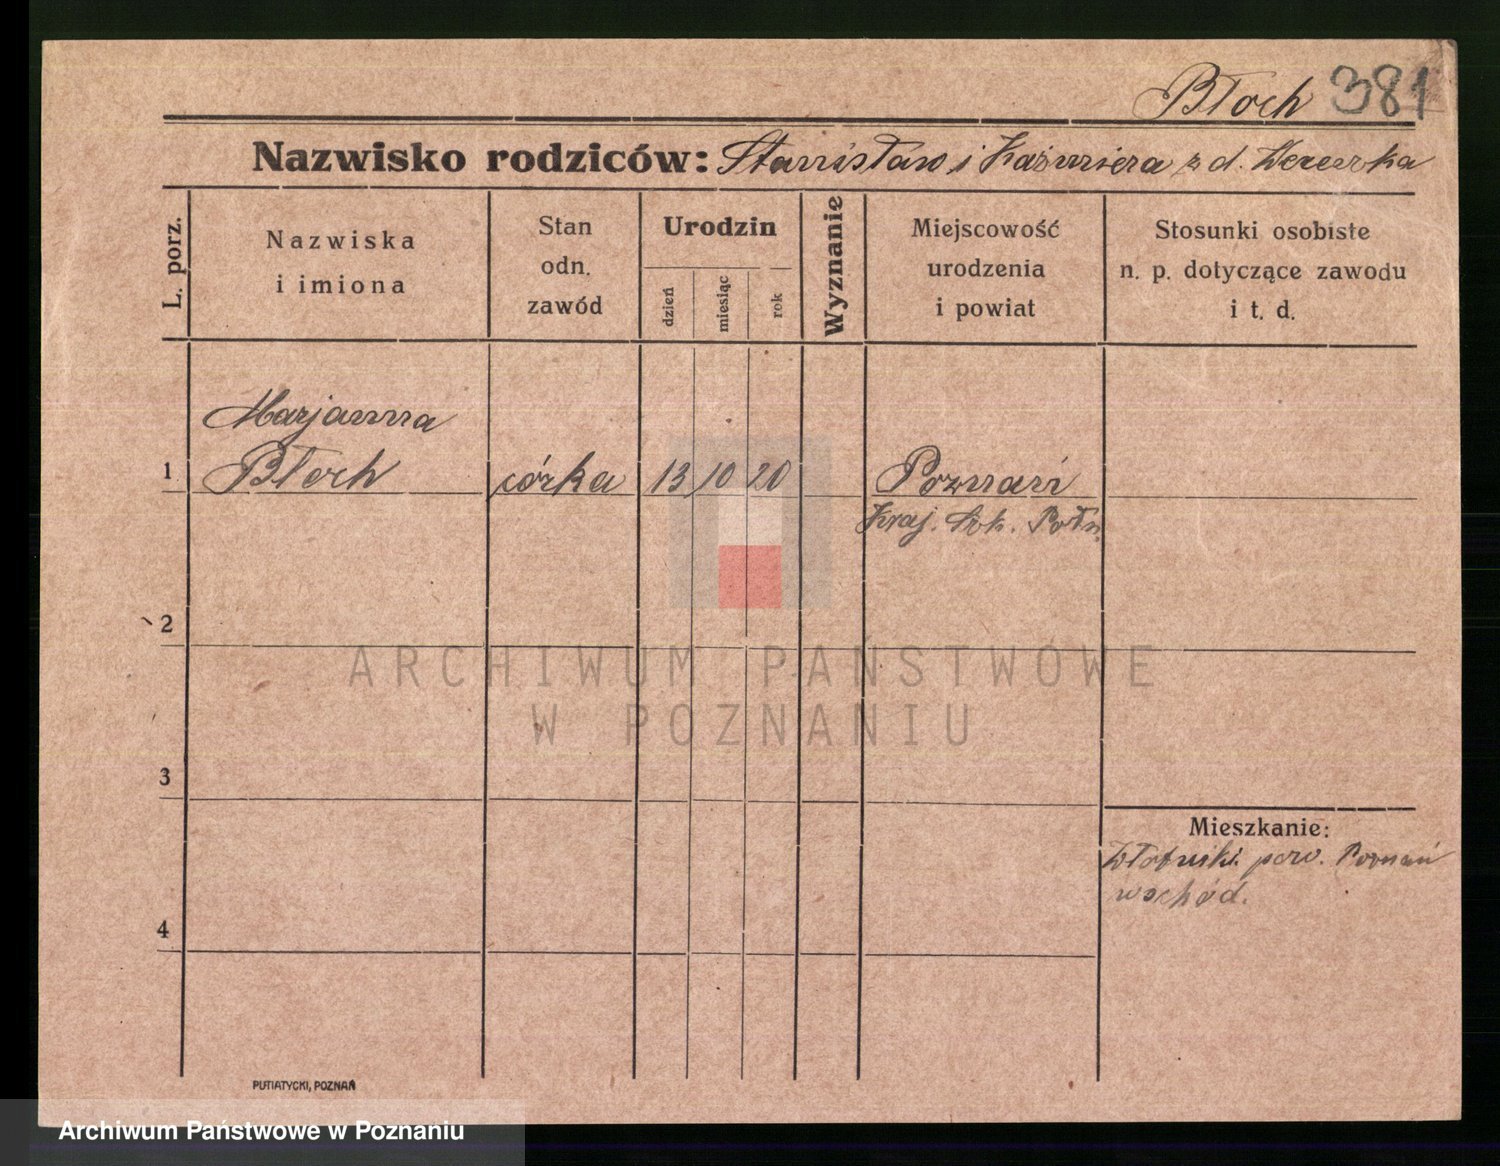 Błoch 381
Nazwisko rodziców: Stanisław i Kaźmiera z d.
L. porz.
Nazwiska
i imiona
Stan
odn.
zawód
Urodzin
dzień
miesiąc
rok
Wyznanie
Miejscowość
urodzenia
i powiat
Stosunki osobiste
n. p. dotyczące zawodu
i t. d.
Marjanna
1 Błoch córka 13 10 20 Poznań
Kraj. Szk. Położn.
2
ARCHIWUM PAŃSTWOWE
W POZNANIU
3
Mieszkanie:
Złotniki pow. Poznań
wschód.
4
PUTIATYCKI, POZNAŃ
Archiwum Państwowe w Poznaniu